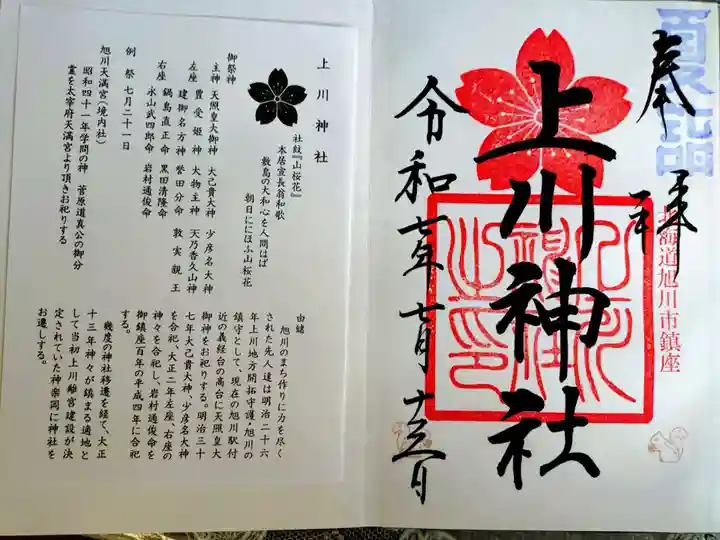 上川神社
社紋『山桜花』
本居宣長翁和歌
敷島の大和心を人問はば
朝日ににほふ山桜花
御祭神
主神 天照皇大御神 大己貴大神 少彦名大神
左座 豊受姫神 大物主神 天乃香久山神
建御名方神 誉田分命 敦実親王
右座 鍋島直正命 黒田清隆命
永山武四郎命 岩村通俊命
例祭 七月二十一日
旭川天満宮(境内社)
昭和四十一年学問の神 菅原道真公の御分
霊を太宰府天満宮より頂きお祀りする
由緒
旭川のまち作りに力を尽く
された先人達は明治二十六
年上川地方開拓守護・旭川の
鎮守として、現在の旭川駅付
近の義経台の高台に天照皇大
御神をお祀りする。明治三十
七年大己貴大神、少彦名大神
を合祀、大正二年左座、右座の
神々を合祀し、岩村通俊命を
御鎮座百年の平成四年に合祀
する。
幾度の神社移遷を経て、大正
十三年神々が鎮まる適地と
して当初上川離宮建設が決
定されていた神楽岡に神社を
お遷しする。
夏詣
奉拝
北海道旭川市鎮座
上川神社
令和七年七月十三日